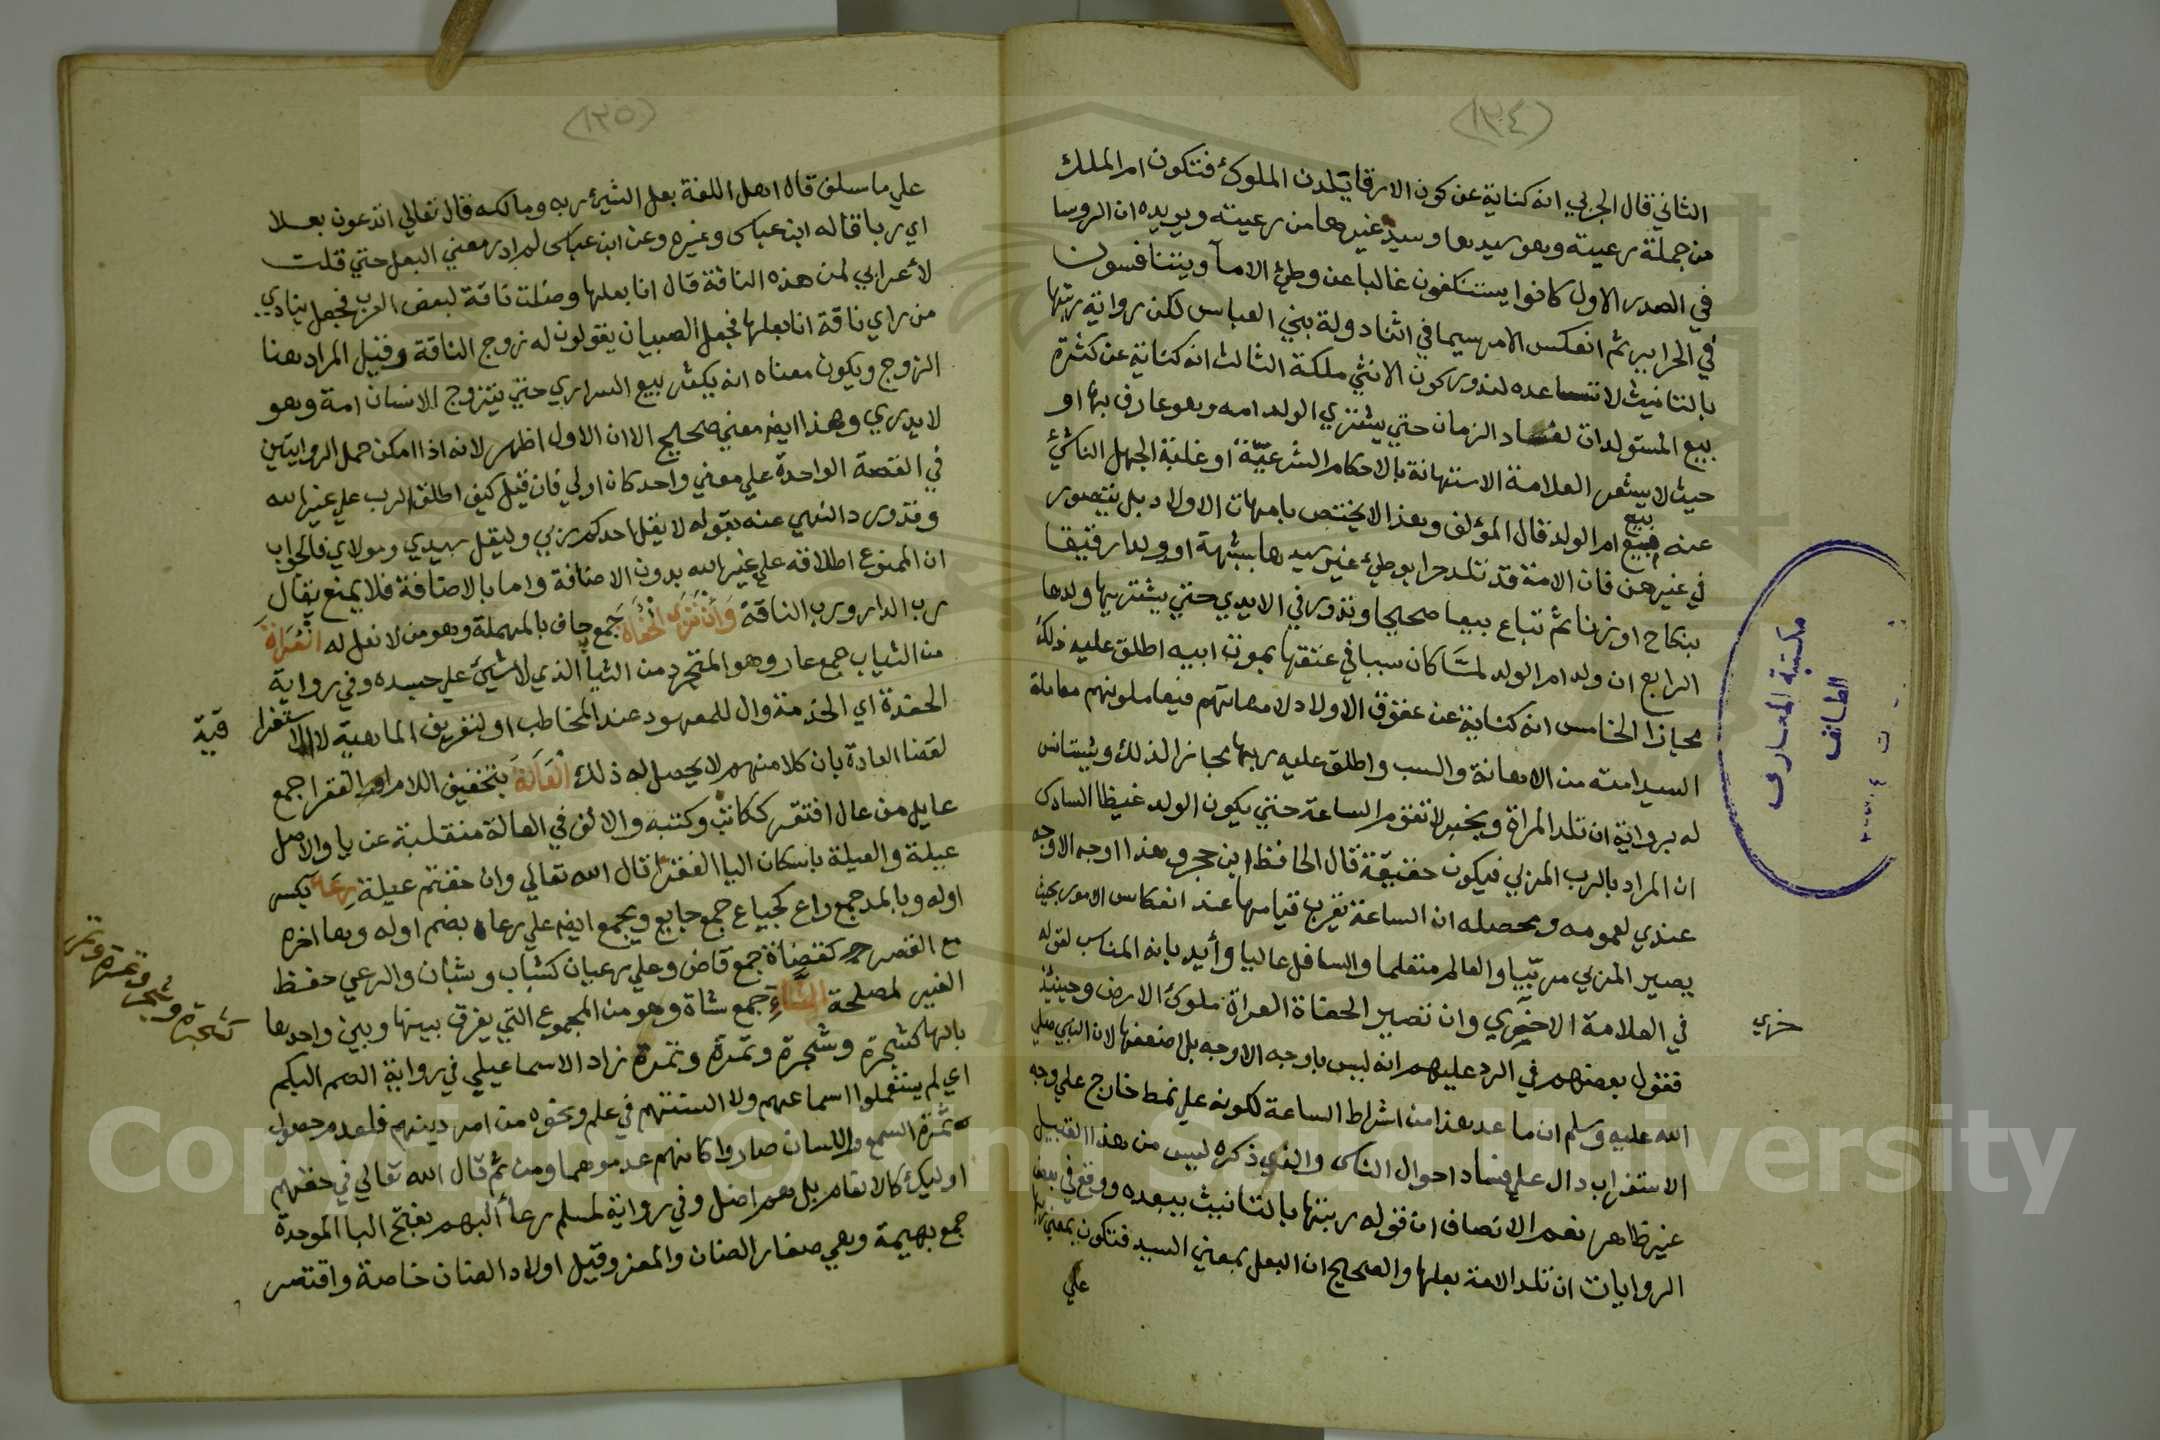 (١٣٤)
الثاني قال الحربي انه كناية عن كون الارقا يلدن الملوك فتكون ام الملك
من جملة رعيته وهو سيدها وسيد غيرها من رعيته ويويده ان الروسا
في الصدر الاول كانوا يستنكفون غالبا عن وطئ الاماء ويتنافسون
في الحراير ثم انعكس الامر سيما في اثنا دولة بني العباس لكن رواية ربتها
بالتانيث لا تساعده لندور كون الانثي ملكة الثالث انه كناية عن كثرة
بيع المستولدات لفساد الزمان حتي يشتري الولد امه وهو عارف بها او
حيث لا يشعر العلامة الاستهانة بالاحكام الشرعيّة او غلبة الجهل الناشئ
عنه بيع ام الولد قال المؤلف وهذا لا يختص بامهات الاولاد بل يتصور
بيع
في غيرهن فان الامة قد تلد حرا بوطئ غير سيدها بشبهة او ولدا رقيقا
بنكاح او زنا ثم تباع بيعا صحيحا وتدور في الايدي حتي يشتريها ولدها
الرابع ان ولد ام الولد لمّا كان سببا في عتقها بموت ابيه اطلق عليه ذلك
مجازا الخامس انه كناية عن عقوق الاولاد لامهاتهم فيعاملونهم معاملة
السيد امته من الاهانة والسب واطلق عليه ربها مجازا لذلك ويستانس
له برواية ان تلد المراة وبخبر لا تقوم الساعة حتي يكون الولد غيظا السادس
ان المراد بالرب المربي فيكون حقيقة قال الحافظ ابن حجر وهذا اوجه الاوجه
عندي لعمومه ومحصله ان الساعة يقرب قيامها عند انعكاس الامور بحيث
يصير المربي مربّيا والعالم متعلما والسافل عاليا وأيد بانه المناسب لقوله
في العلامة الاخري وان تصير الحفاة العراة ملوك الارض وحينئذ
خري
فقول بعضهم في الرد عليهم انه ليس باوجه الاوجه بل اضعفها لان النبي صلي
الله عليه وسلم ان ما عد هذا من اشراط الساعة لكونه علي نمط خارج علي وجه
الاستغراب دال علي فساد احوال الناس والذي ذكره ليس من هذا القبيل
غير ظاهر نعم الانصاف ان قوله ربتها بالتانيث يبعده ووقع في بعض
الروايات ان تلد الامة بعلها والصحيح ان البعل بمعني السيد فتكون بمعني ربها
علي
مكتبة المعارف
الطائف
(١٣٥)
علي ما سلف قال اهل اللغة بعل الشيء ربه ومالكه قال تعالي اتدعون بعلا
اي ربا قاله ابن عباس وغيره وعن ابن عباس لم ادر معني البعل حتي قلت
لأعرابي لمن هذه الناقة قال انا بعلها وضلت ناقة لبعض العرب فجعل ينادي
من راي ناقة انا بعلها فجعل الصبيان يقولون له زوج الناقة وقيل المراد هنا
الزوج ويكون معناه انه يكثر بيع السراري حتي يتزوج الانسان امة وهو
لا يدري وهذا ايضا معني صحيح الا ان الاول اظهر لانه اذا امكن حمل الروايتين
في القصة الواحدة علي معني واحد كان اولي فان قيل كيف اطلق الرب علي غير الله
وقد ورد النهي عنه بقوله لا يقل احدكم ربي وليقل سيدي ومولاي فالجواب
ان الممنوع اطلاقه علي غير الله بدون الاضافة واما بالاضافة فلا يمنع يقال
رب الدار ورب الناقة وَأَنْ تَرَى الْحُفَاةَ جمع حاف بالمهملة وهو من لا نعل له الْعُرَاةَ
من الثياب جمع عار وهو المتجرد من الثياب الذي لا شيئ علي جسده وفي رواية
الحفدة اي الخدمة وال للمعهود عند المخاطب او لتعريف الماهية لا للاستغراق
لقضا العادة بان كلا منهم لا يحصل له ذلك الْعَالَةَ بتخفيف اللام اي الفقرا جمع
عايل من عال افتقر ككاتب وكتبة والالف في العالة منقلبة عن يا والاصل
عيلة والعيلة باسكان اليا الفقر قال الله تعالي وان خفتم عيلة رِعَاء بكسر
اوله وبالمد جمع راع كجياع جمع جايع ويجمع ايضا علي رعاة بضم اوله وبهاء اخره
مع القصر كقضاة جمع قاض وعلي رعيان كشاب وشبان والرعي حفظ
الغير لمصلحة الشَّاءِ جمع شاة وهو من المجموع التي يفرق بينها وبين واحدها
بالهاء كشجرة وشجرة وتمرة وتمرة زاد الاسماعيلي في رواية الصم البكم
كشجرة وشجر وتمرة وتمر
اي لم يستعملوا اسماعهم ولا السنتهم في علم ونحوه من امر دينهم فلعدم حصول
ثمرة السمع واللسان صاروا كانهم عدموهما ومن ثم قال الله تعالي في حقهم
اوليك كالانعام بل هم اضل وفي رواية لمسلم رعاء البهم بفتح البا الموحدة
جمع بهيمة وهي صغار الضان والمعز وقيل اولاد الضان خاصة واقتصر
Copyright © King Saud University